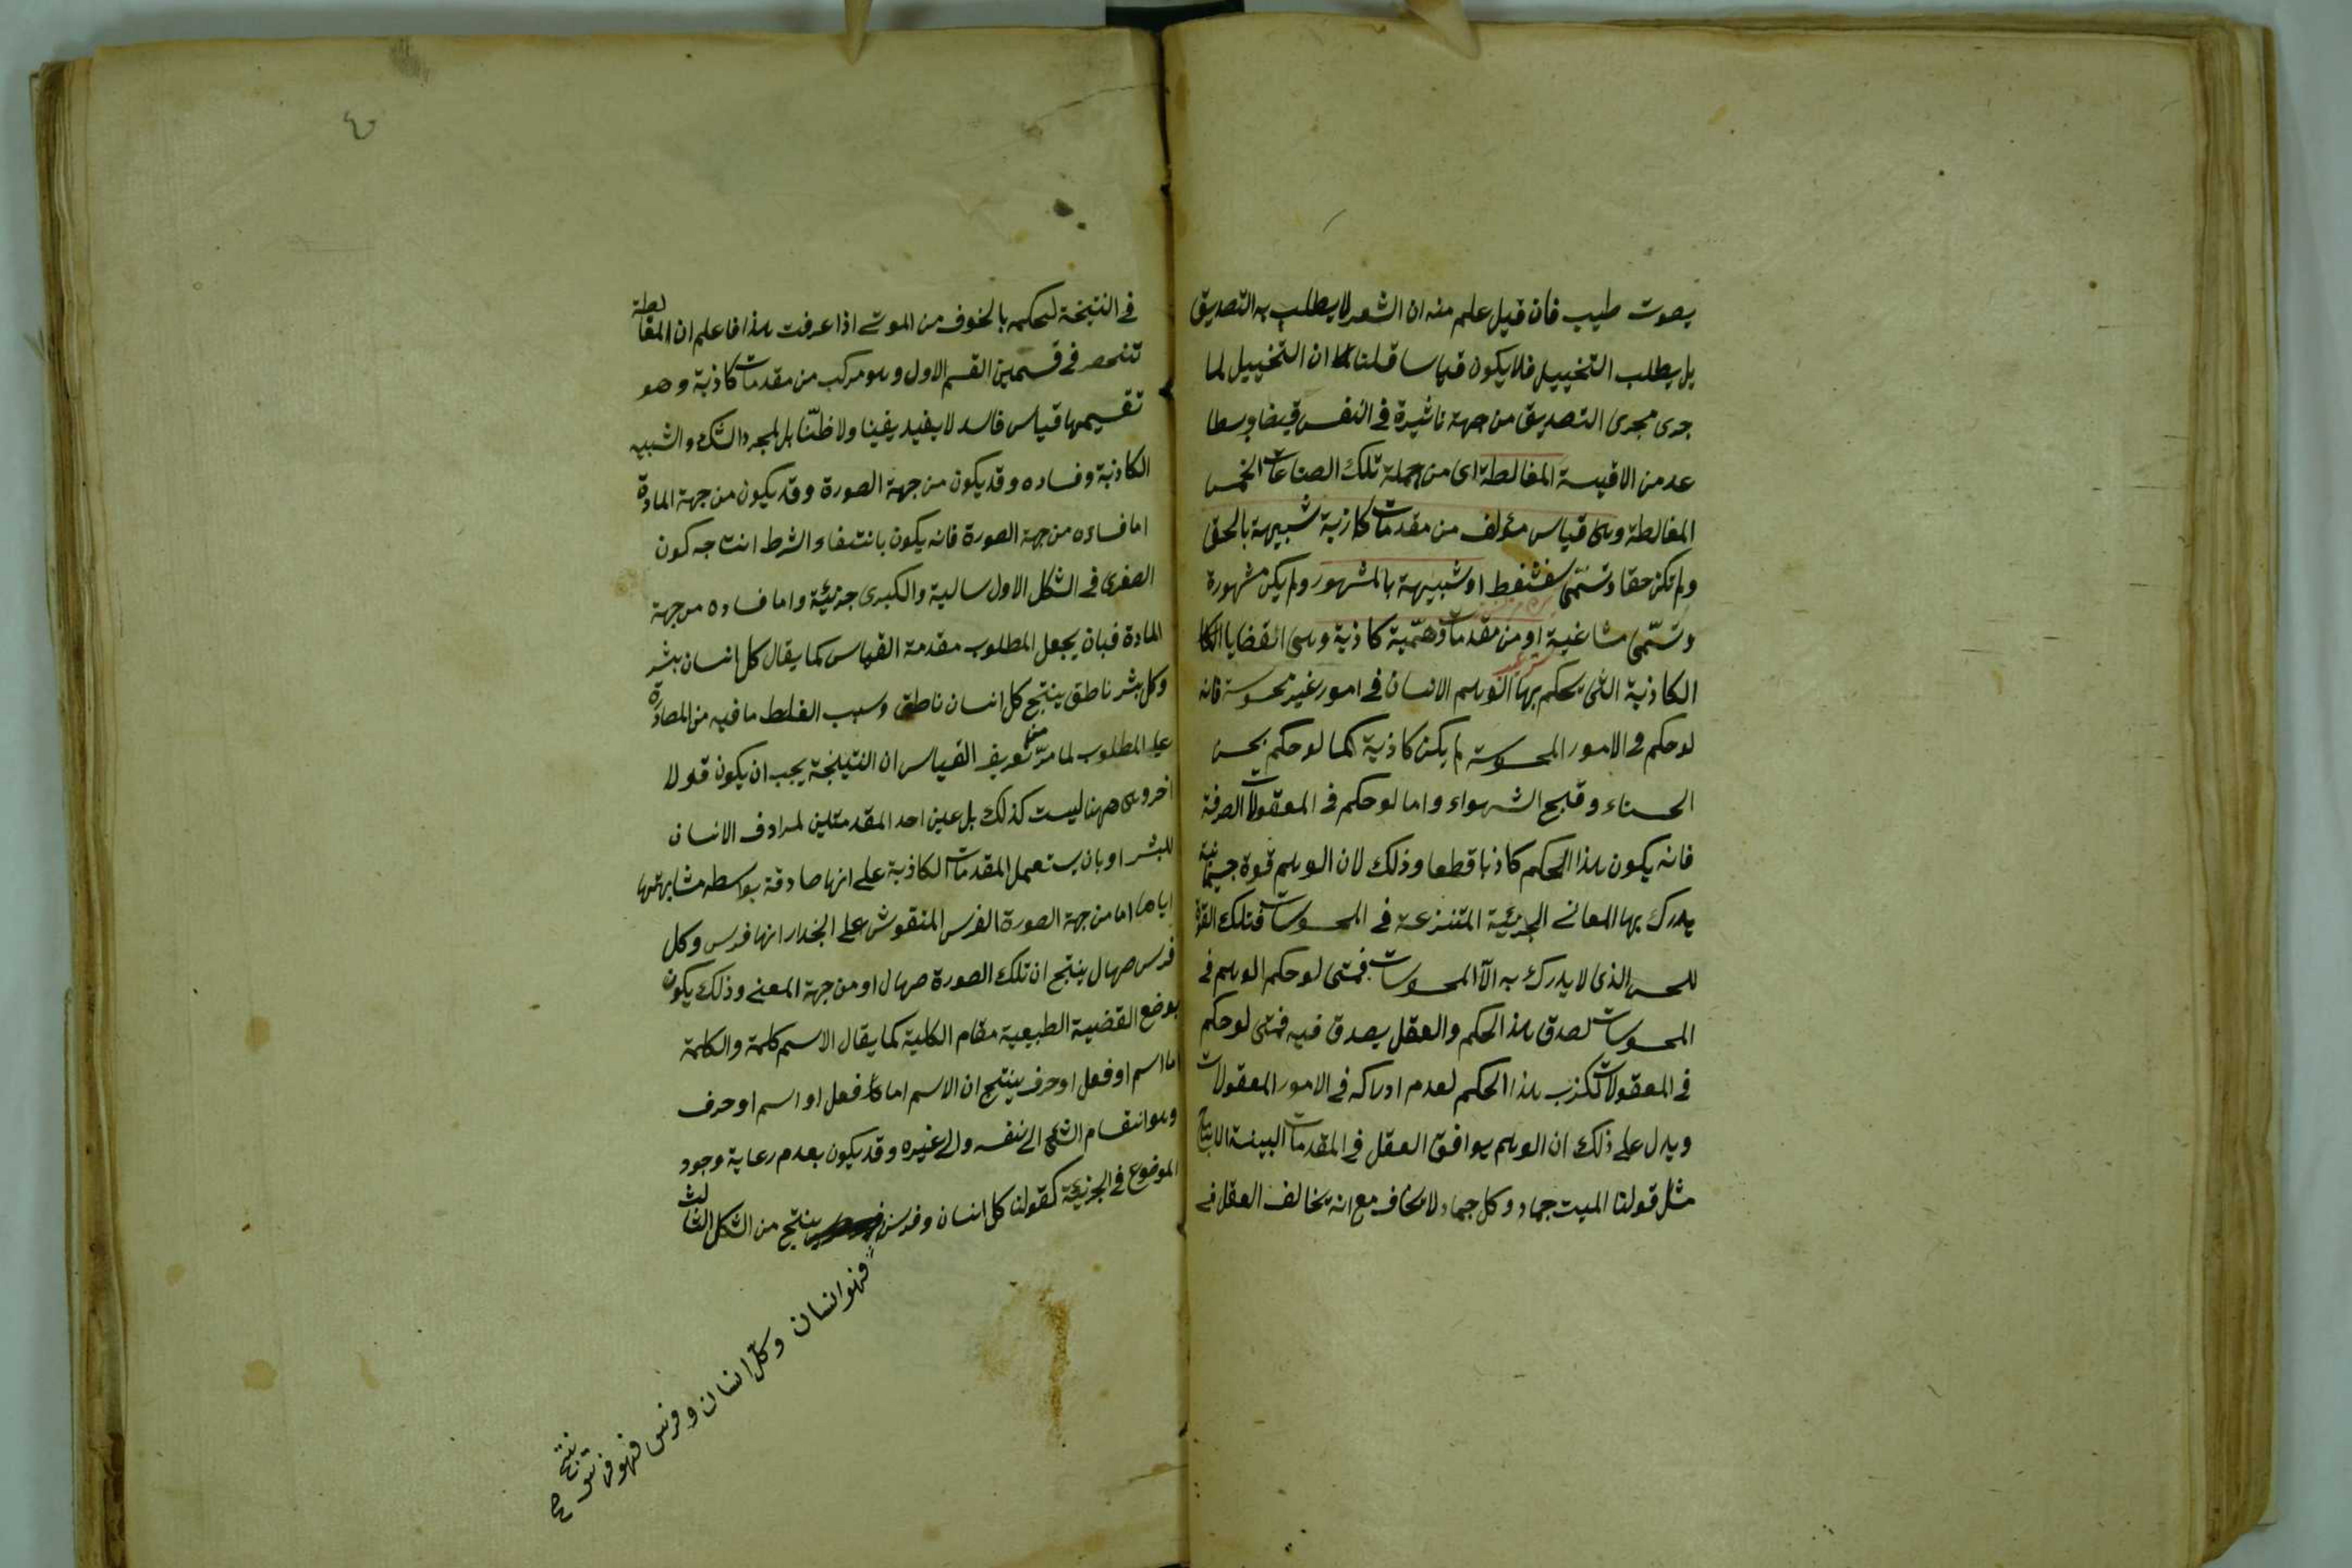 بصوت طيب فان قيل علم منه ان الشعر لا يطلب به التصديق
بل يطلب التخييل فلا يكون قياسا قلنا ان التخييل لما
جرى مجرى التصديق من جهة تاثيرة في النفس قبضا وبسطا
عد من الاقيسة المغالطة اى من جملة تلك الصناعات الخمس
المغالطة وهى قياس مؤلف من مقدمات كاذبة شبيهة بالحق
ولم تكن حقا وتسمّى سفسطة او شبيهة بالمشهور ولم يكن مشهورة
وتسمّى مشاغبة او من مقدمات وهميّة كاذبة وهى القضايا الكا
الكاذبة التى يحكم بها الوهم الانسان فى امور غير محسوسة فانه
لو حكم فى الامور المحسوسة لم يكن كاذبة كما لو حكم بحسن
الحسناء وقبح الشوهاء واما لو حكم فى المعقولات الصرفة
فانه يكون هذا الحكم كاذبا قطعا وذلك لان الوهم قوة جسمانية
يدرك بها المعانى الجزئية المتنزعة فى المحسوسات فتلك القوة
للحس الذى لا يدرك به الّا المحسوسات فمتى لو حكم الوهم فى
المحسوسات لصدق هذا الحكم والعقل يصدق فيه فمتى لو حكم
فى المعقولات لكذب هذا الحكم لعدم ادراكه فى الامور المعقولات
ويدل على ذلك ان الوهم يوافق العقل فى المقدمات البينة الانتاج
مثل قولنا الميت جماد وكل جماد لا يخاف مع انه يخالف العقل فى
٤٠
فى النتيجة لحكمه بالخوف من الموتى اذا عرفت هذا فاعلم ان المغالطة
تنحصر فى قسمين القسم الاول وهو مركب من مقدمات كاذبة وهو
تقسيمها قياس فاسد لا يفيد يقينا ولا ظنّا بل لمجرد الشك والشبيه
الكاذبة وفساده وقد يكون من جهة الصورة وقد يكون من جهة المادة
اما فساده من جهة الصورة فانه يكون بانتفاء الشرط انتاجه كون
الصغرى فى الشكل الاول سالبة والكبرى جزئية واما فساده من جهة
المادة فبان يجعل المطلوب مقدمة القياس كما يقال كل انسان بشر
وكل بشر ناطق ينتج كل انسان ناطق وسبب الغلط ما فيه من المصادرة
على المطلوب لما مرّ من تعريف القياس ان النتيجة يجب ان يكون قولا
اخر وهى ههنا ليست كذلك بل عين احد المقدمتين لمرادف الانسان
للبشر او بان يستعمل المقدمات الكاذبة على انها صادقة بواسطه مشابهتها
اياها اما من جهة الصورة الفرس المنقوش على الجدار انها فرس وكل
فرس صهال ينتج ان تلك الصورة صهال او من جهة المعنى وذلك يكون
بوضع القضية الطبيعية مقام الكلية كما يقال الاسم كلمة والكلمة
اما اسم او فعل او حرف ينتج ان الاسم اما فعل او اسم او حرف
وهو انقسام الشئ الى نفسه والى غيره وقد يكون بعدم رعاية وجود
الموضوع فى الجزئية كقولنا كل انسان وفرس ينتج من الشكل الثالث
فهو انسان وكل انسان وفرس فهو فرس ينتج
صح